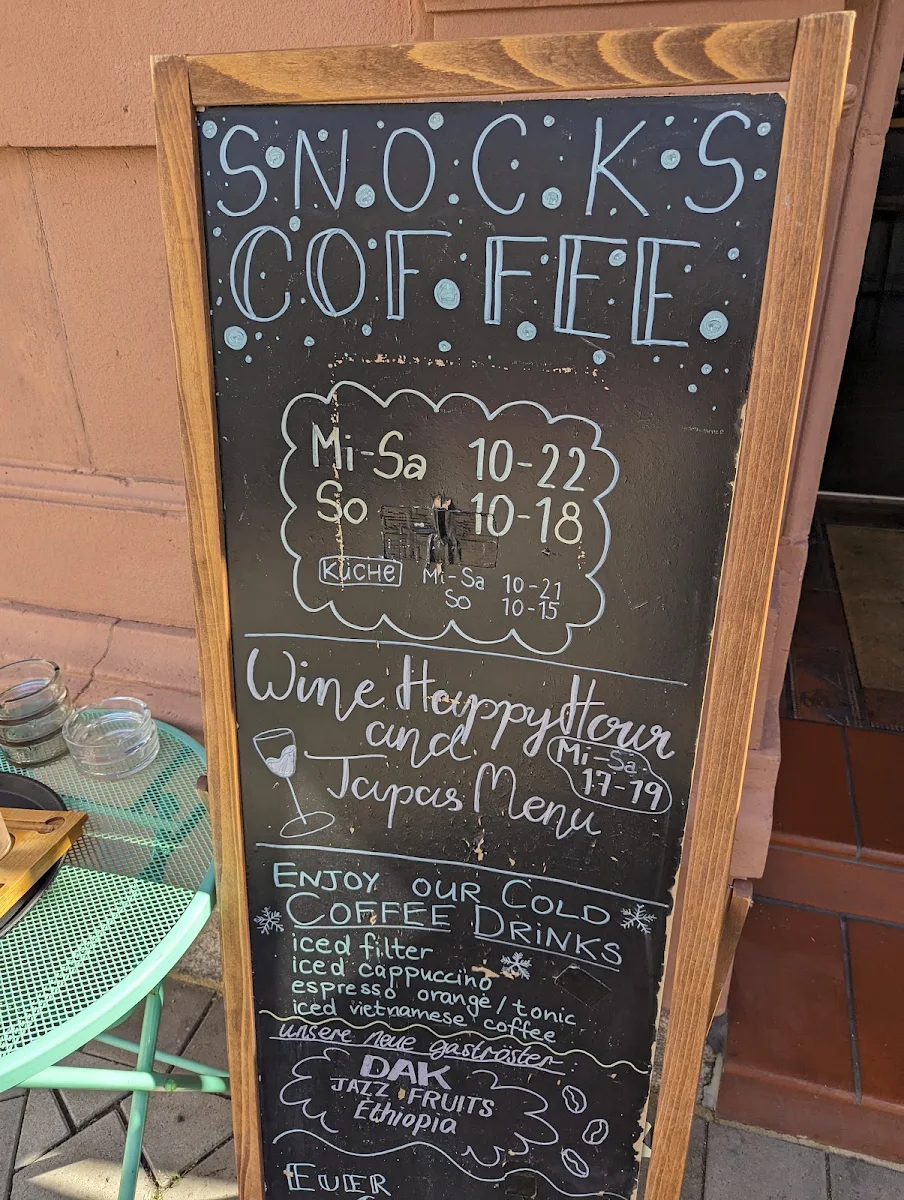 SNOCKS
COFFEE
Mi-Sa 10-22
So 10-18
KÜCHE Mi-Sa 10-21
So 10-15
Wine Happy Hour
and
Tapas Menu
Mi-Sa
17-19
ENJOY OUR COLD
COFFEE DRiNKS
iced filter
iced cappuccino
espresso orange/tonic
iced vietnamese coffee
unsere neue gaströster
DAK
JAZZ FRUITS
Ethiopia
EUER